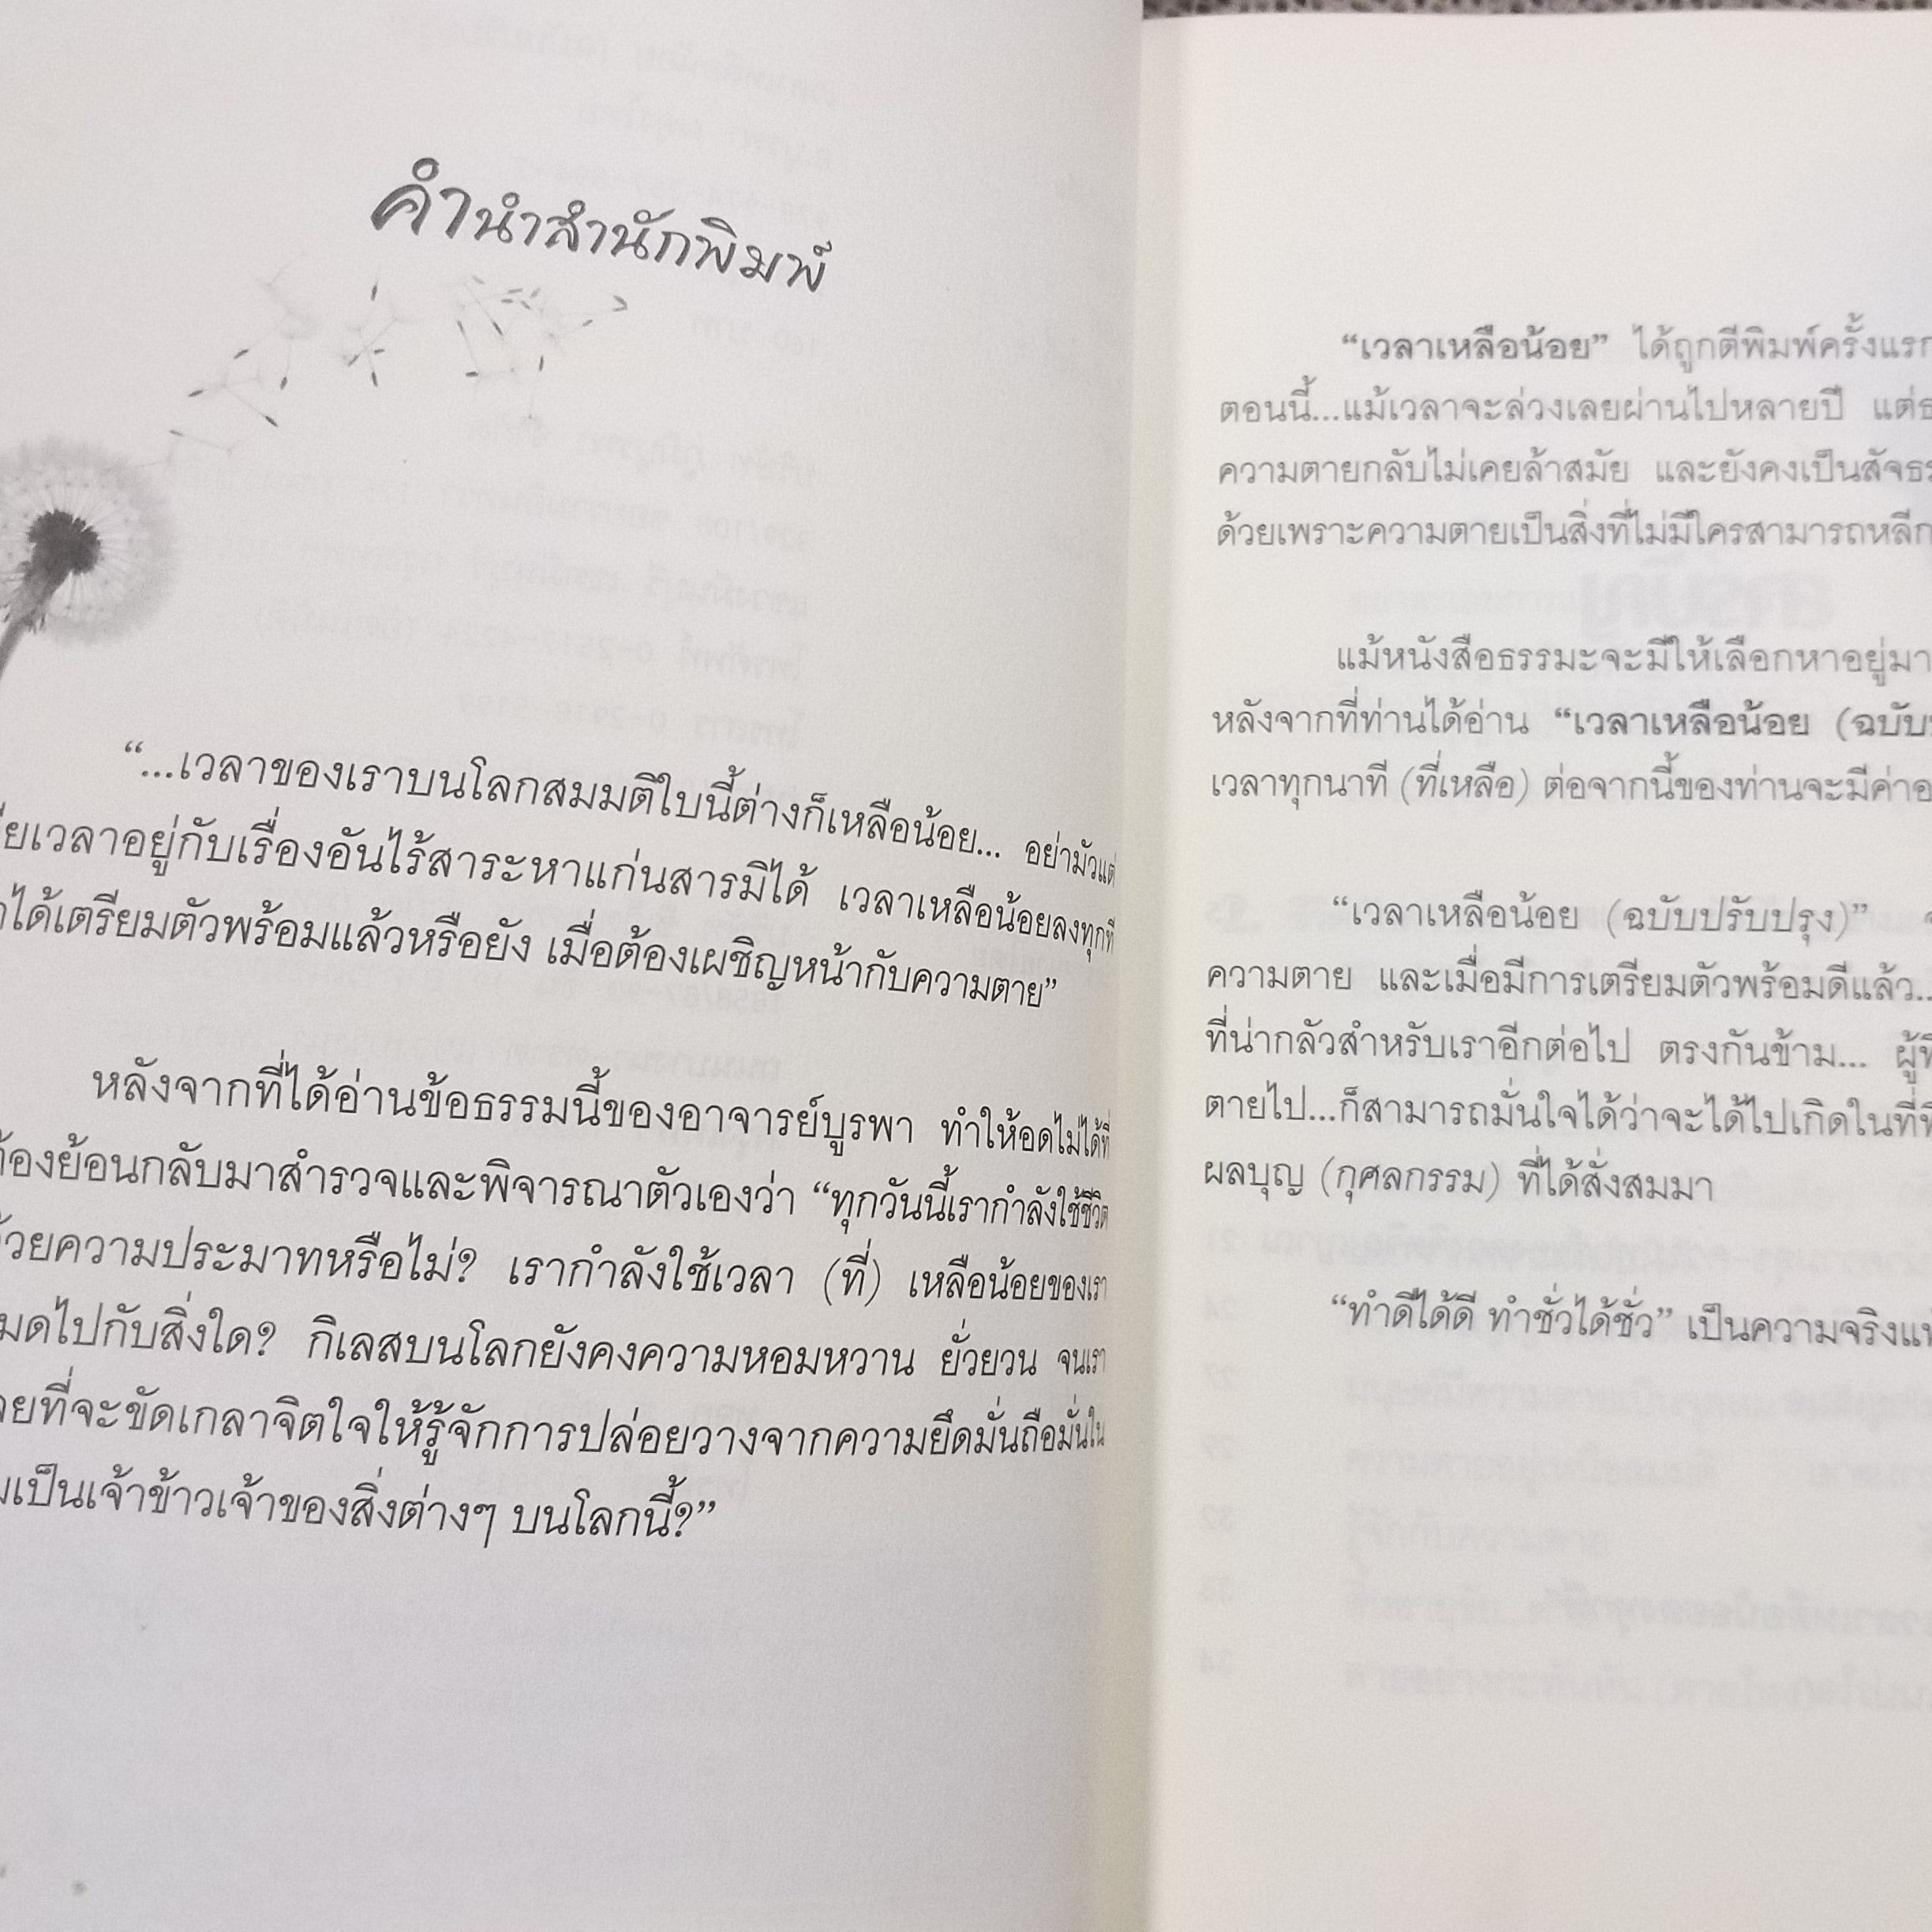 คำนำสำนักพิมพ์
“...เวลาของเราบนโลกสมมติใบนี้ต่างก็เหลือน้อย... อย่ามัวแต่
เวลาอยู่กับเรื่องอันไร้สาระหาแก่นสารมิได้ เวลาเหลือน้อยลงทุกที
ได้เตรียมตัวพร้อมแล้วหรือยัง เมื่อต้องเผชิญหน้ากับความตาย”
หลังจากที่ได้อ่านข้อธรรมนี้ของอาจารย์บูรพา ทำให้อดไม่ได้ที่
ต้องย้อนกลับมาสำรวจและพิจารณาตัวเองว่า “ทุกวันนี้เรากำลังใช้ชีวิต
ด้วยความประมาทหรือไม่? เรากำลังใช้เวลา (ที่) เหลือน้อยของเรา
หมดไปกับสิ่งใด? กิเลสบนโลกยังคงความหอมหวาน ยั่วยวน จนเรา
ที่จะขัดเกลาจิตใจให้รู้จักการปล่อยวางจากความยึดมั่นถือมั่นใน
เป็นเจ้าข้าวเจ้าของสิ่งต่างๆ บนโลกนี้?”
“เวลาเหลือน้อย” ได้ถูกตีพิมพ์ครั้งแรก
ตอนนี้...แม้เวลาจะล่วงเลยผ่านไปหลายปี แต่
ความตายกลับไม่เคยล้าสมัย และยังคงเป็น
ด้วยเพราะความตายเป็นสิ่งที่ไม่มีใครสามารถหลีก
แม้หนังสือธรรมะจะมีให้เลือกหาอยู่
หลังจากที่ท่านได้อ่าน “เวลาเหลือน้อย (ฉบับ
เวลาทุกนาที (ที่เหลือ) ต่อจากนี้ของท่านจะมีค่า
“เวลาเหลือน้อย (ฉบับปรับปรุง)”
ความตาย และเมื่อมีการเตรียมตัวพร้อมดีแล้ว...
ที่น่ากลัวสำหรับเราอีกต่อไป ตรงกันข้าม...
ตายไป...ก็สามารถมั่นใจได้ว่าจะได้ไปเกิดในที่
ผลบุญ (กุศลกรรม) ที่ได้สั่งสมมา
“ทำดีได้ดี ทำชั่วได้ชั่ว” เป็นความจริง